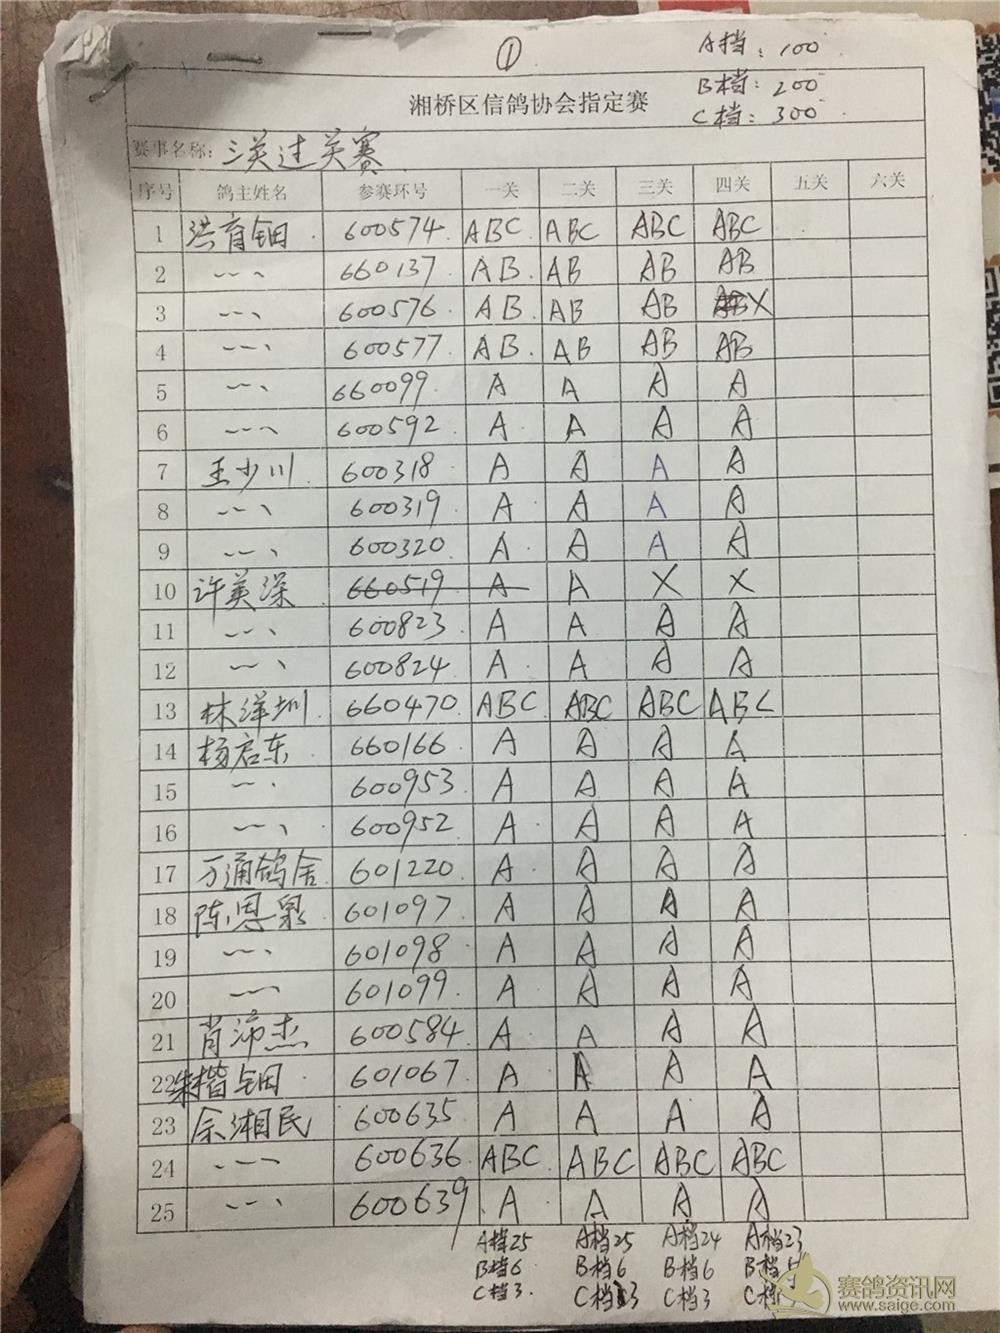 ①
A档：100
B档：200
C档：300
湘桥区信鸽协会指定赛
赛事名称：三关过关赛
序号 鸽主姓名 参赛环号 一关 二关 三关 四关 五关 六关
1 洪育钿 600574 ABC ABC ABC ABC
2 〃 660137 AB AB AB AB
3 〃 600576 AB AB AB X
4 〃 600577 AB AB AB AB
5 〃 660099 A A A A
6 〃 600592 A A A A
7 王少川 600318 A A A A
8 〃 600319 A A A A
9 〃 600320 A A A A
10 许英深 660519 A A X X
11 〃 600823 A A A A
12 〃 600824 A A A A
13 林洋圳 660470 ABC ABC ABC ABC
14 杨启东 660166 A A A A
15 〃 600953 A A A A
16 〃 600952 A A A A
17 万通鸽舍 601220 A A A A
18 陈恩泉 601097 A A A A
19 〃 601098 A A A A
20 〃 601099 A A A A
21 肖沛杰 600584 A A A A
22 朱楷钿 601067 A A A A
23 余湘民 600635 A A A A
24 〃 600636 ABC ABC ABC ABC
25 〃 600639 A A A A
A档25 A档25 A档24 A档23
B档6 B档6 B档6 B档5
C档3 C档3 C档3 C档
赛鸽资讯网
www.saige.com